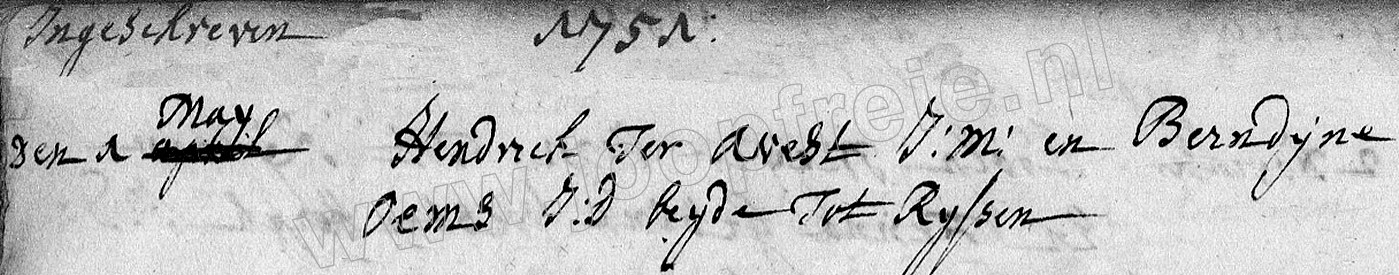 Ingeschreven 1751:
May
Den 1 april Hendrick Ter Avest J:m: en Berndyne
Oems J:D beyde Tot Ryssen
www.joopfreie.nl